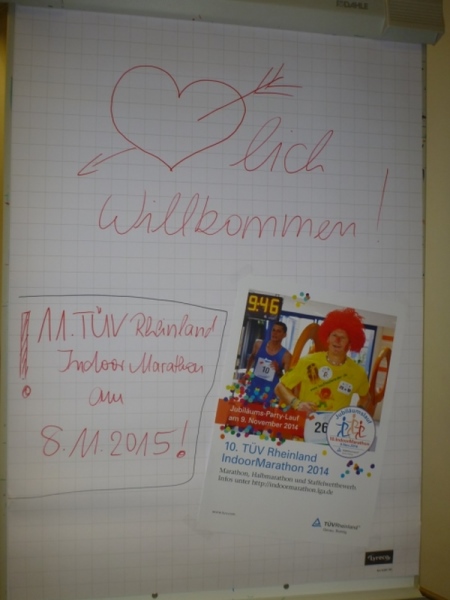 lich
Willkommen!
11. TÜV Rheinland
Indoor Marathon
am
8.11.2015!
9:46
10
Jubiläums-Party-Lauf
am 9. November 2014
26
10. TÜV Rheinland
IndoorMarathon 2014
Marathon, Halbmarathon und Staffelwettbewerb
Infos unter http://indoormarathon.lga.de
TÜVRheinland